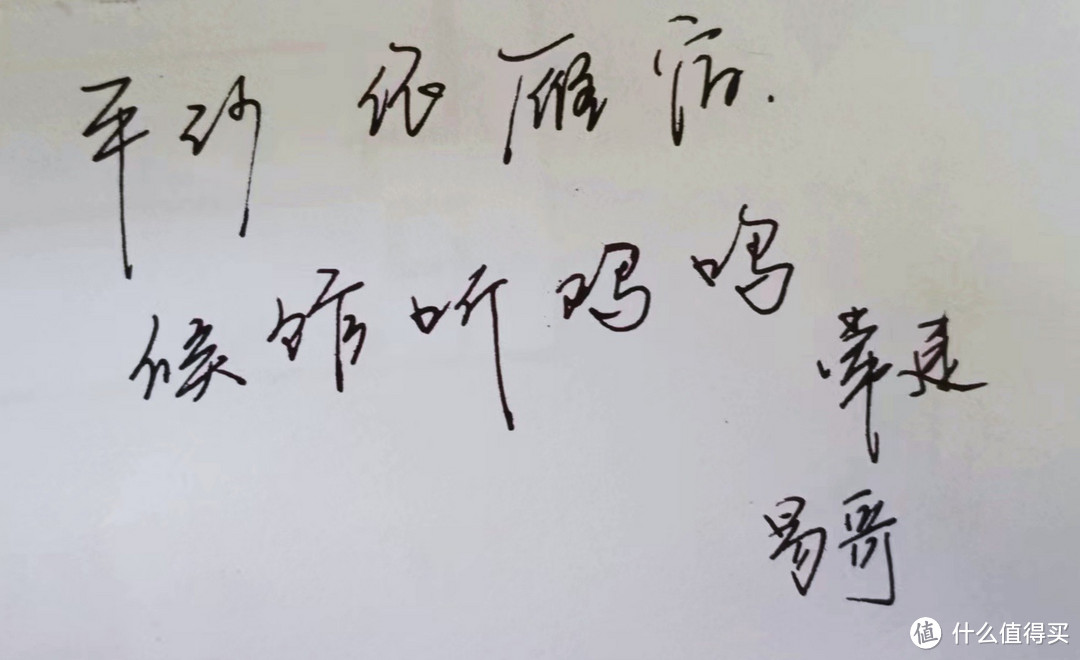 平沙依雁宿
候馆听鸡鸣
常建
易哥
值 什么值得买